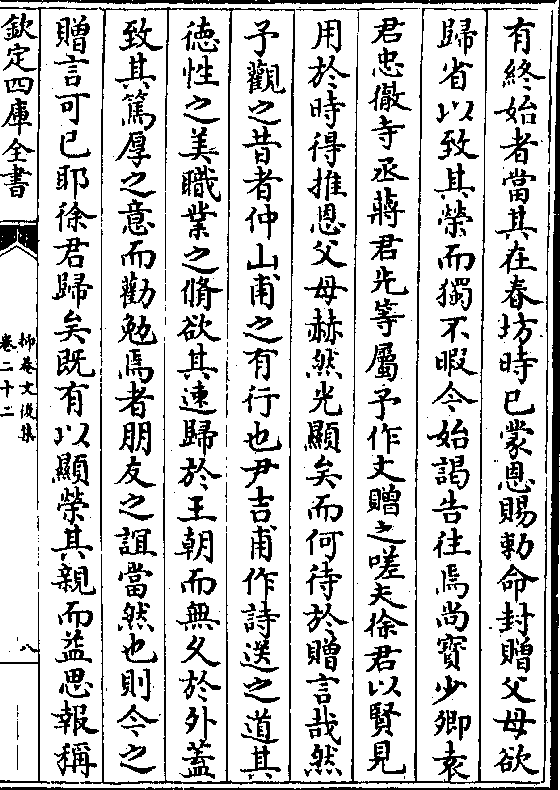 有終始者當其在春坊時已蒙恩賜勅命封贈父母欲
歸省以致其榮而獨不暇今始謁告往焉尚寳少卿袁
君忠徹寺丞蔣君先等屬予作文贈之嗟夫徐君以賢見
用於時得推恩父母赫然光顯矣而何待於贈言哉然
予觀之昔者仲山甫之有行也尹吉甫作詩送之道其
徳性之美職業之脩欲其速歸於王朝而無久於外蓋
致其篤厚之意而勸勉焉者朋友之誼當然也則今之
贈言可已耶徐君歸矣既有以顯榮其親而益思報稱
欽定四庫全書
抑菴文後集
卷二十二
八